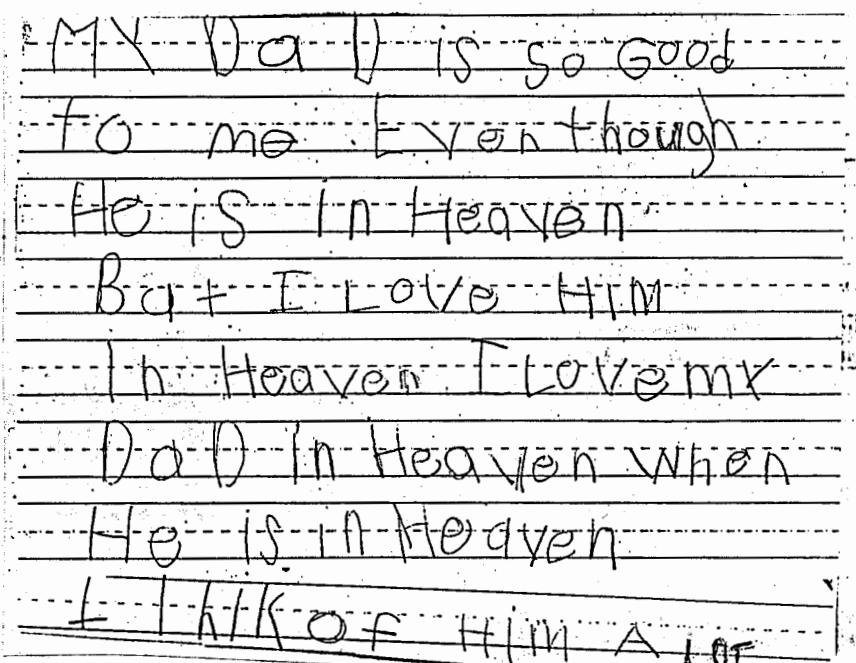 MY DaD is so Good
to me Even though
He is In Heaven
But I Love HIM
In Heaven I Love my
DaD In Heaven When
He is in Heaven
I Thik OF HiM A LOT